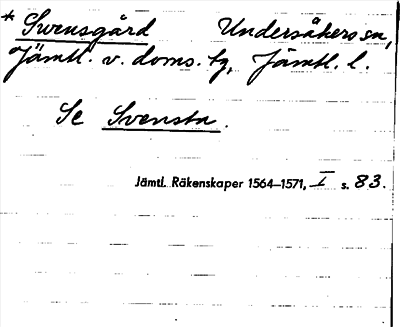 * Swensgård Undersåkers sn,
Jämtl. v. doms. tg, Jämtl. l.
Se Svensta.
Jämtl. Räkenskaper 1564–1571, I s. 83.